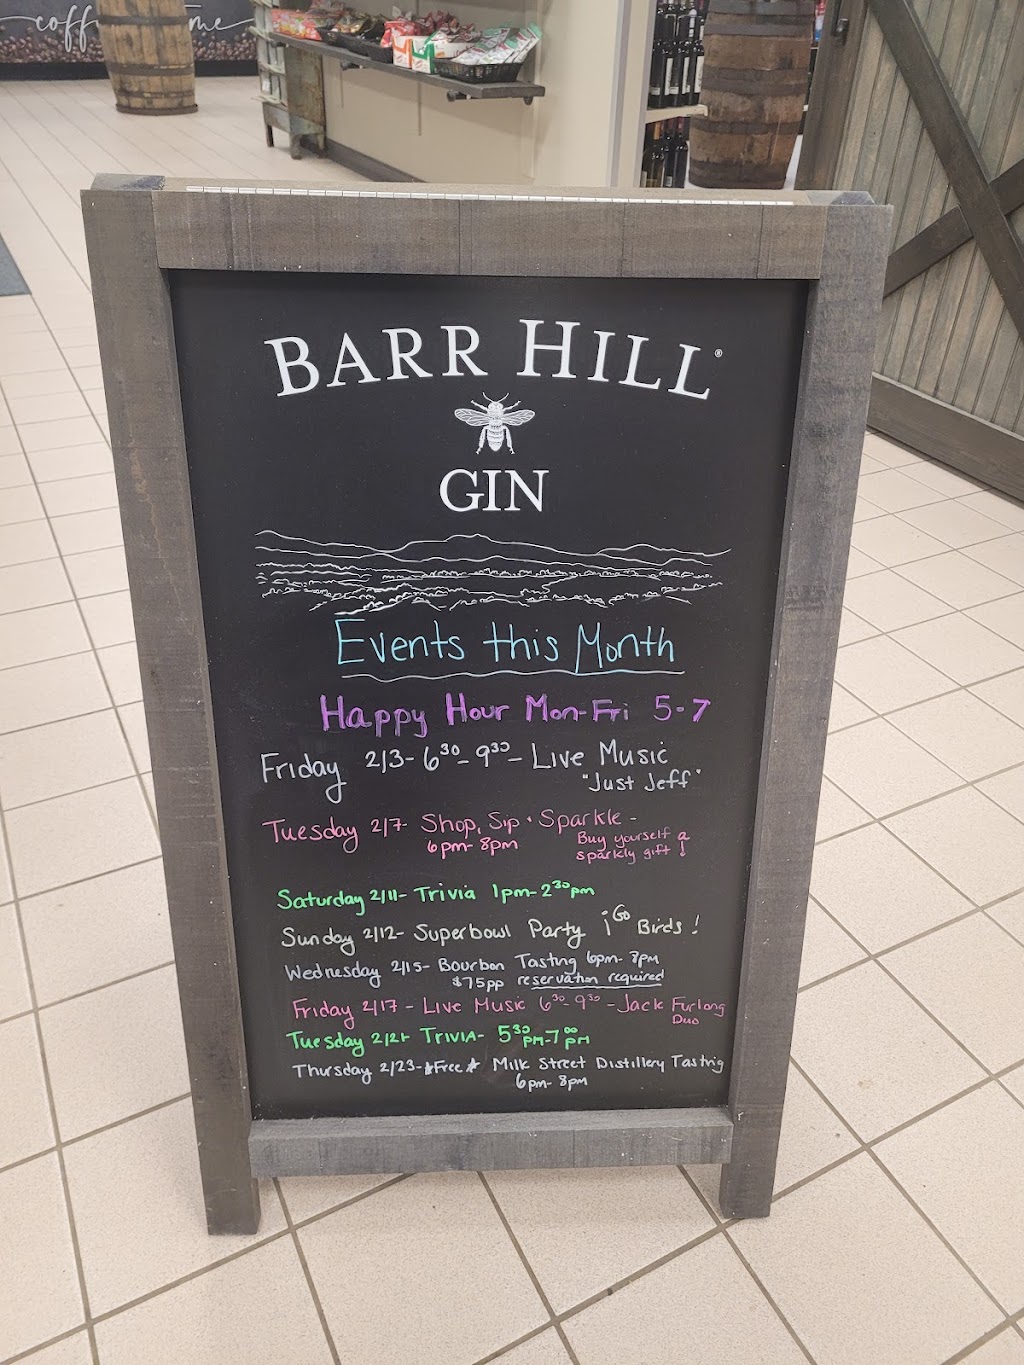 BARR HILL®
GIN
Events this Month
Happy Hour Mon-Fri 5-7
Friday 2/3- 6³⁰- 9³⁰- Live Music
"Just Jeff"
Tuesday 2/7- Shop, Sip • Sparkle -
6pm- 8pm
Buy yourself a
sparkly gift!
Saturday 2/11- Trivia 1pm-2³⁰pm
Sunday 2/12- Superbowl Party ¡Go Birds!
Wednesday 2/15- Bourbon Tasting 6pm- 8pm
$75pp reservation required
Friday 2/17 - Live Music 6³⁰- 9³⁰ - Jack Furlong
Duo
Tuesday 2/21- TRIVIA- 5³⁰pm-7⁰⁰pm
Thursday 2/23-*Free* Milk Street Distillery Tasting
6pm- 8pm